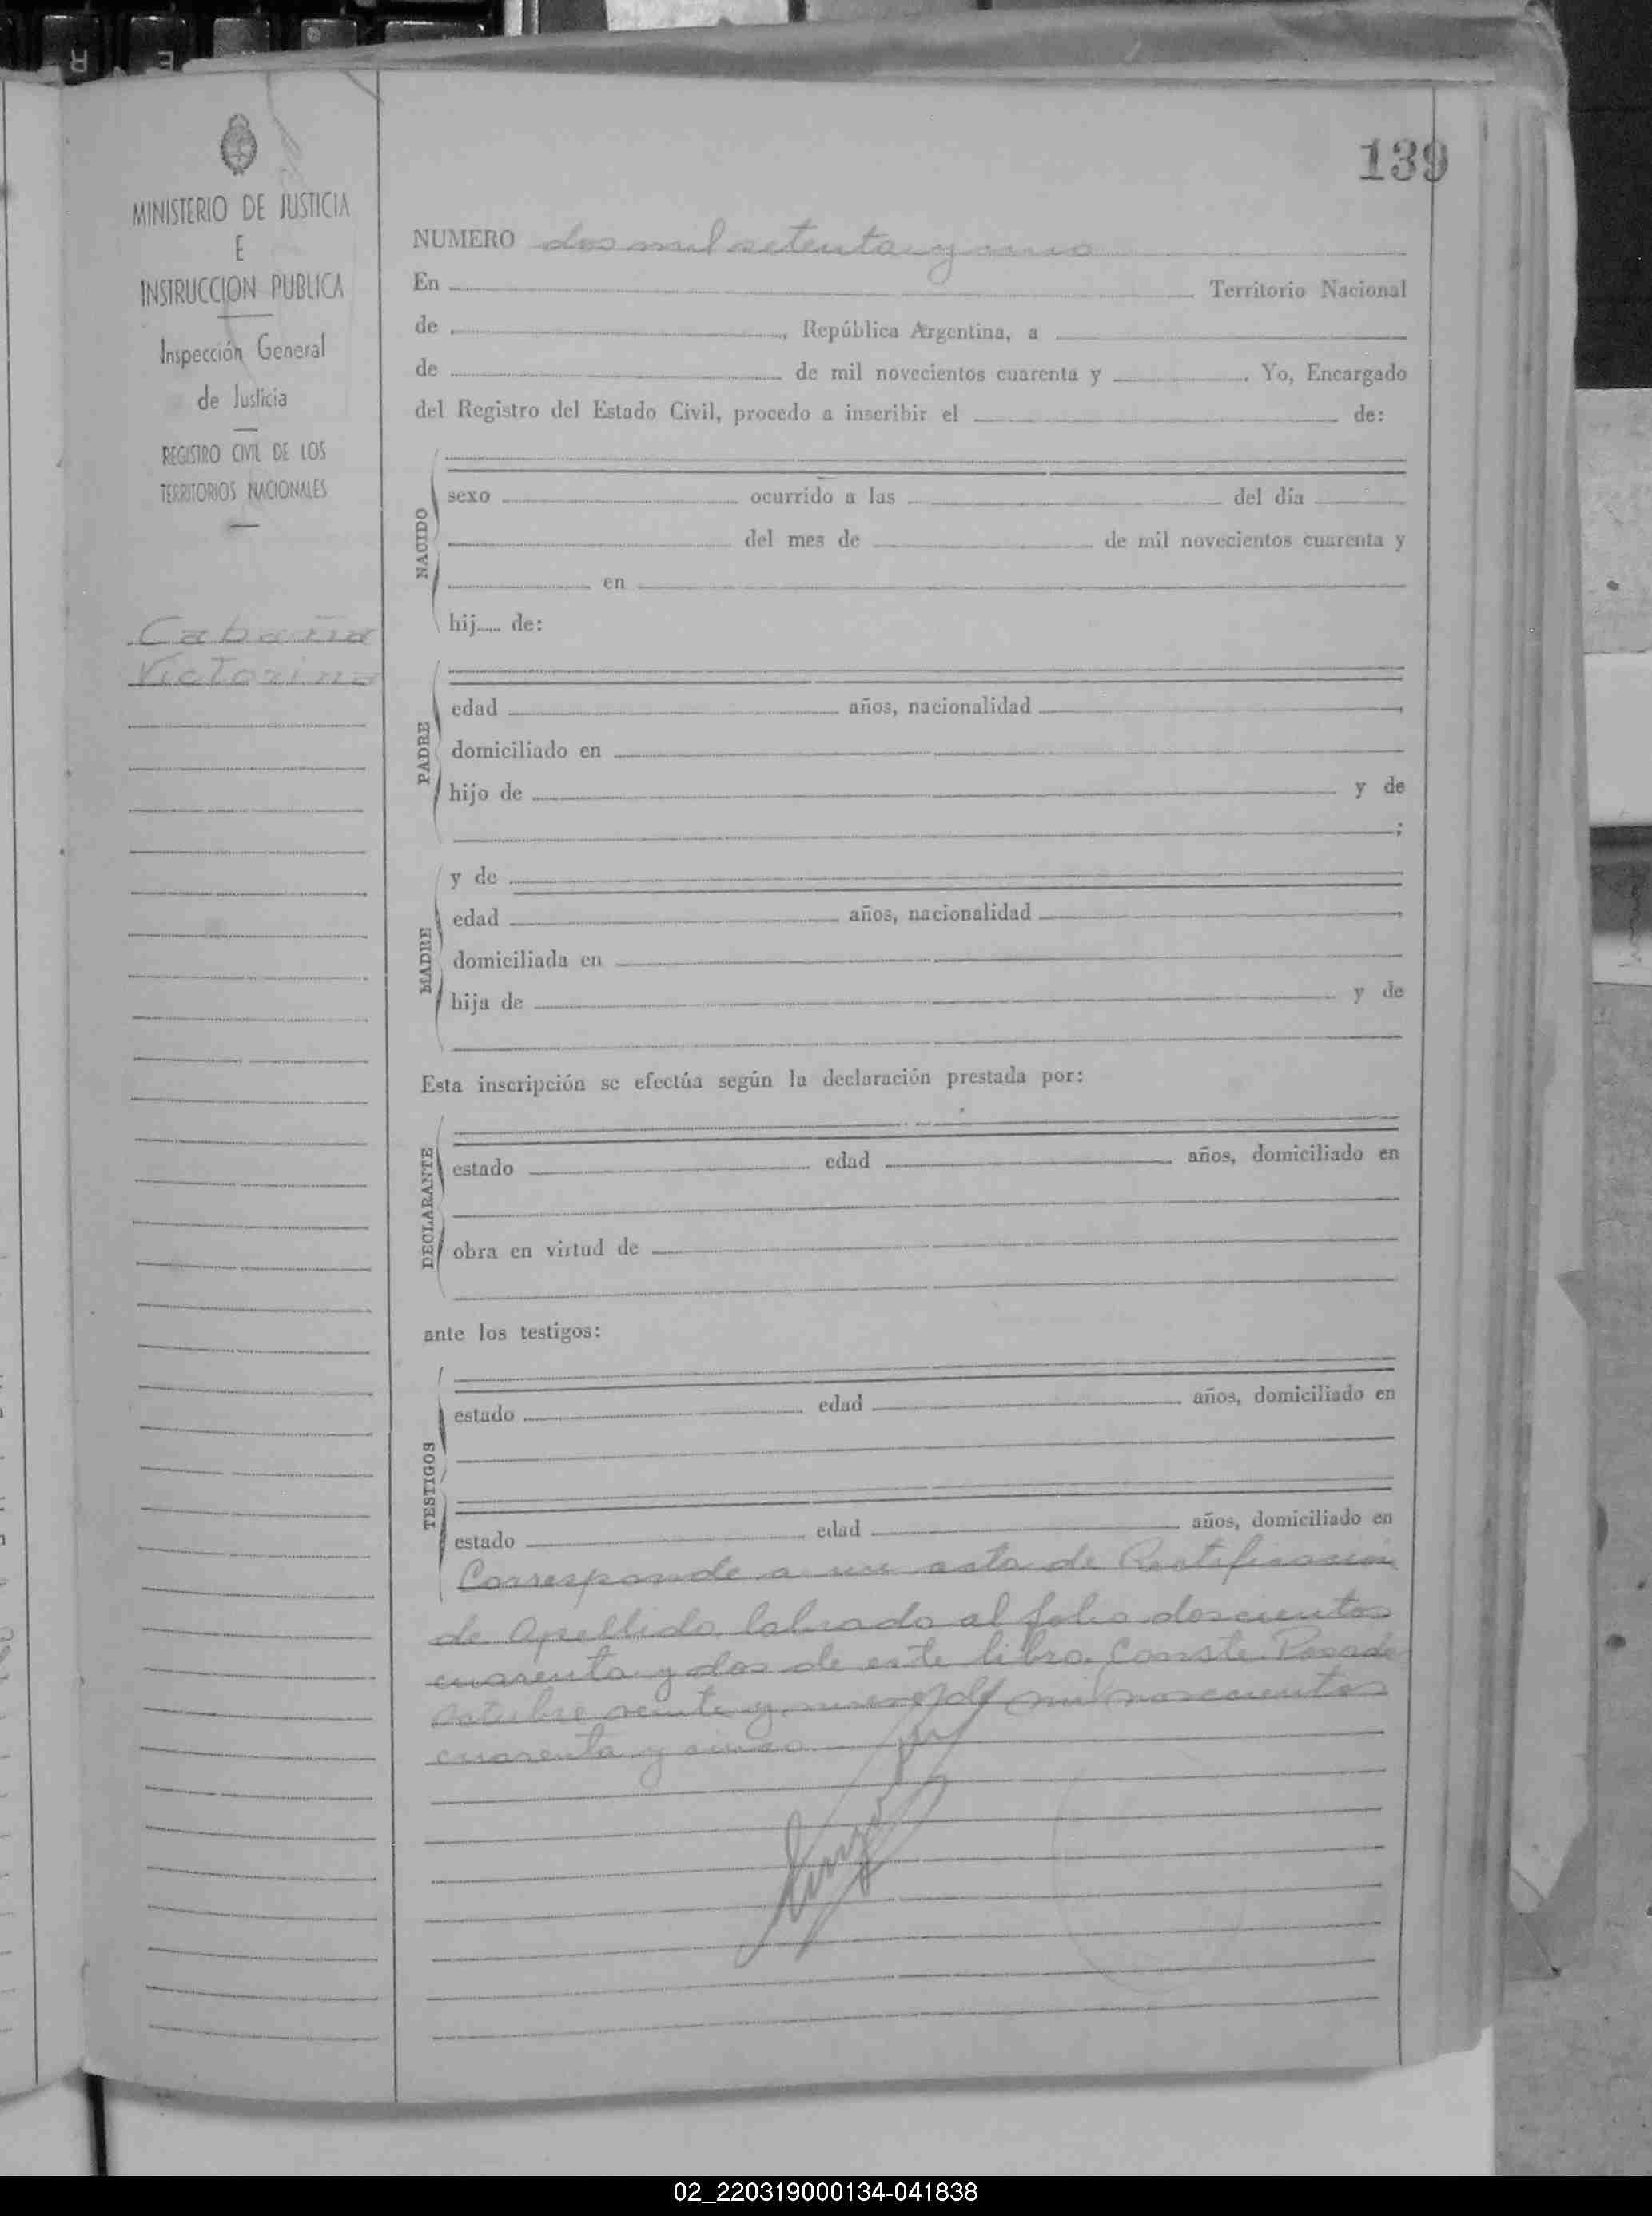 139
MINISTERIO DE JUSTICIA
E
INSTRUCCION PUBLICA
Inspección General
de Justicia
REGISTRO CIVIL DE LOS
TERRITORIOS NACIONALES
Cabaña
Victorino
NUMERO dos mil setenta y uno
En Territorio Nacional
de , República Argentina, a
de de mil novecientos cuarenta y . Yo, Encargado
del Registro del Estado Civil, procedo a inscribir el de:
NACIDO
sexo ocurrido a las del día
del mes de de mil novecientos cuarenta y
en
hij..... de:
PADRE
edad años, nacionalidad ,
domiciliado en
hijo de y de
;
MADRE
y de
edad años, nacionalidad ,
domiciliada en
hija de y de
Esta inscripción se efectúa según la declaración prestada por:
DECLARANTE
estado edad años, domiciliado en
obra en virtud de
ante los testigos:
TESTIGOS
estado edad años, domiciliado en
estado edad años, domiciliado en
Corresponde a un acta de Rectificación
de Apellido labrado al folio doscientos
cuarenta y dos de este libro. Conste. Posadas
octubre veinte y nueve de mil novecientos
cuarenta y cinco
02_220319000134-041838